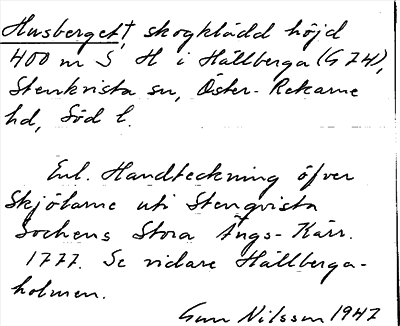 Husberget†, skogklädd höjd
400 m S H i Hällberga (G 74),
Stenkvista sn, Öster-Rekarne
hd, Söd l.
Enl. Handteckning öfver
Skjötarne uti Stenqvista
Sochens Stora Ängs-Kärr.
1777. Se vidare Hällberga-
holmen.
Gun Nilsson 1947